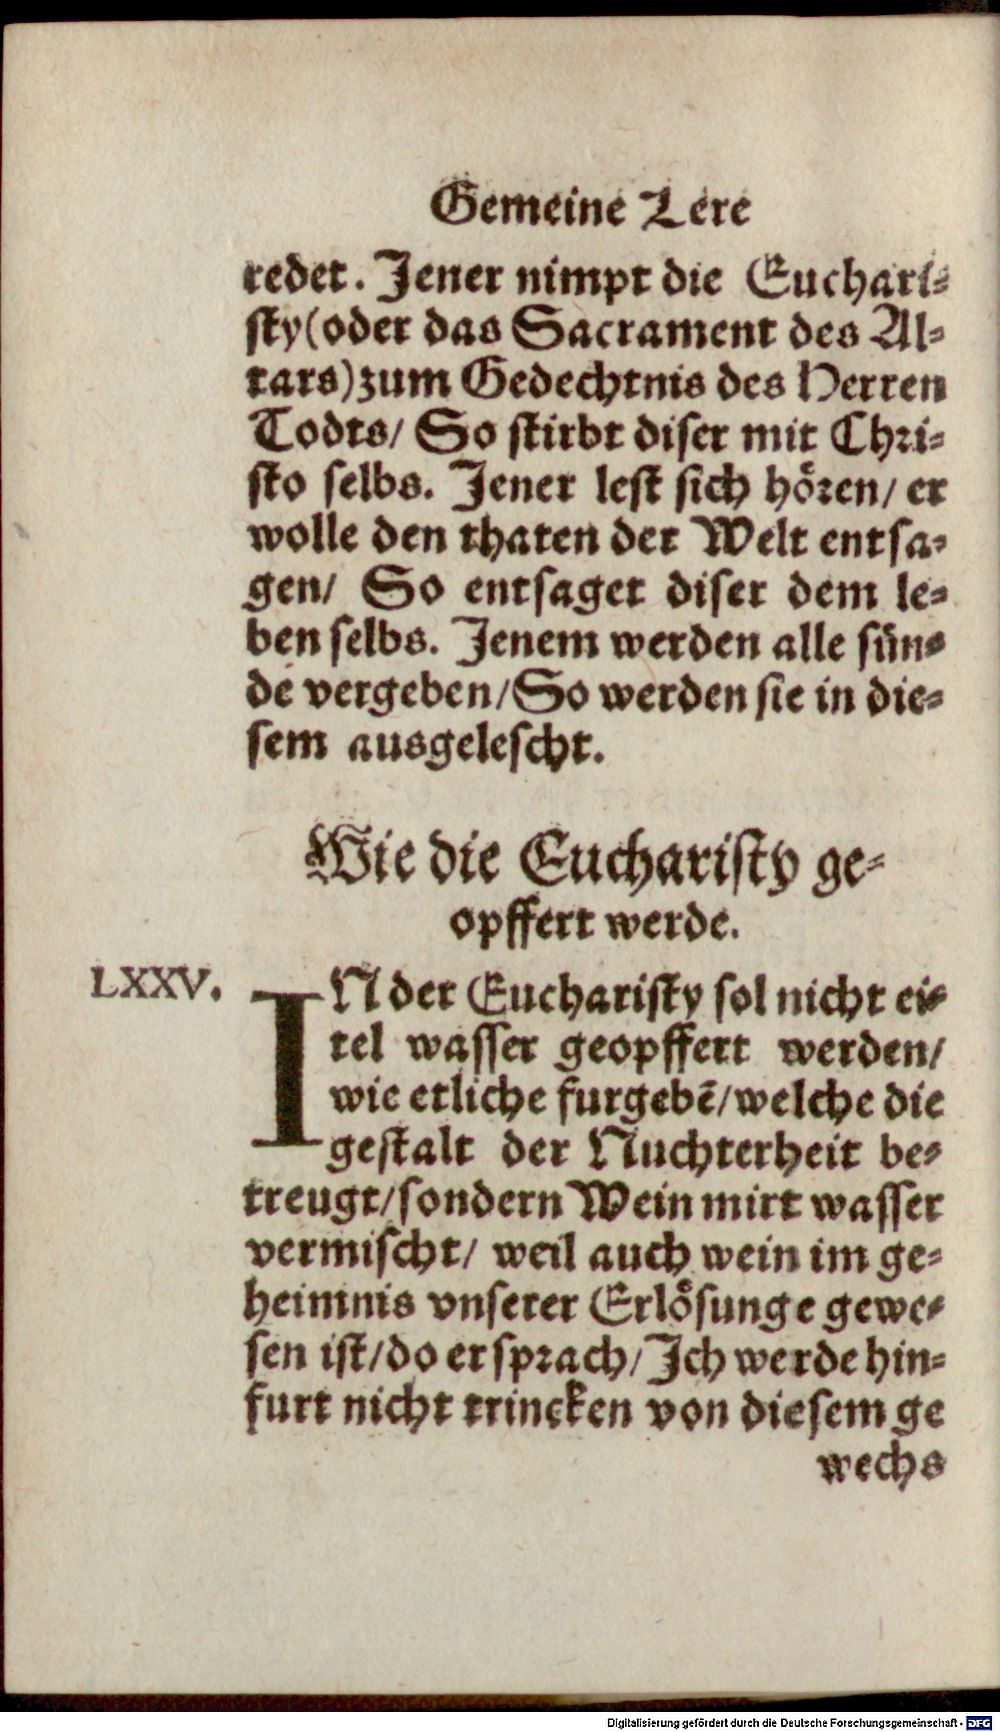 Gemeine Lere
redet. Jener nimpt die Euchari-
sty(oder das Sacrament des Al-
tars)zum Gedechtnis des Herren
Todts/ So stirbt diser mit Chri-
sto selbs. Jener lest sich hören/ er
wolle den thaten der Welt entsa-
gen/ So entsaget diser dem le-
ben selbs. Jenem werden alle sün-
de vergeben/So werden sie in die-
sem ausgelescht.
Wie die Eucharisty ge-
opffert werde.
LXXV.
IN der Eucharisty sol nicht ei-
tel wasser geopffert werden/
wie etliche furgebē/welche die
gestalt der Nuchterheit be-
treugt/sondern Wein mirt wasser
vermischt/ weil auch wein im ge-
heimnis vnserer Erlösunge gewe-
sen ist/do er sprach/Ich werde hin-
furt nicht trincken von diesem ge
wechs
Digitalisierung gefördert durch die Deutsche Forschungsgemeinschaft - DFG